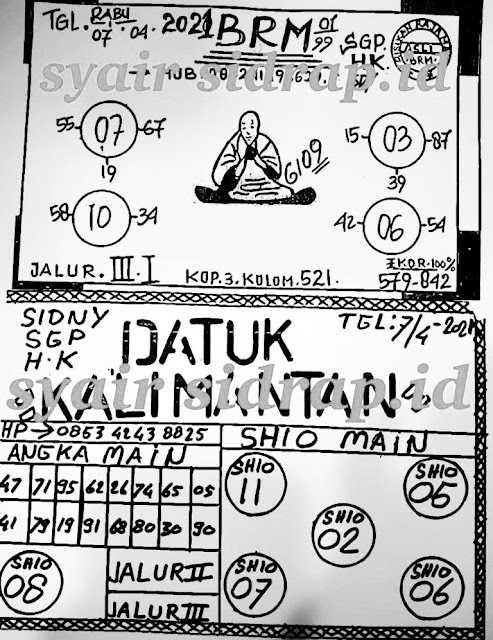 TGL. RABU 07 · 04 · 2021 BRM 01 99
SGP.
H.K.
ASLI
BRM
syair sidrap.id
55 07 67
19
15 03 87
39
6109
58 10 34
42 06 54
JALUR. III. I
KOP. 3. KOLOM. 521.
EKOR. 100%
579-842
SIDNY
SGP
H.K
TGL: 7/4-2021
DATUK
KALIMANTAN
syair sidrap.id
HP → 0853 4243 8825
SHIO MAIN
ANGKA MAIN
47 71 95 62 26 74 65 05
41 79 19 91 68 80 30 90
SHIO
11
SHIO
05
SHIO
02
SHIO
07
SHIO
06
SHIO
08
JALUR II
JALUR III